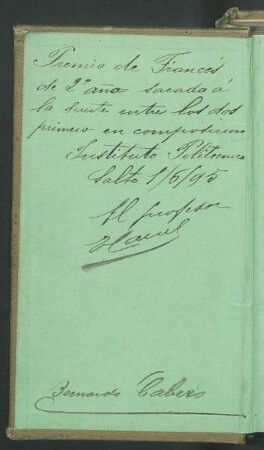 Premio de Francés
de 2º año sacada á
la suerte entre los dos
primero en composicion
Instituto Politecnico
Salto 1/6/95
El profesor
Bernardo Cabero